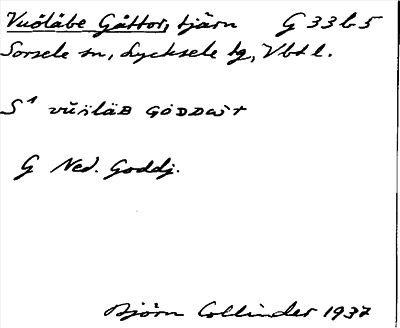 Vuölåbe Gåttor, tjärn G 33 b 5
Sorsele sn, Lycksele lg, Vbt l.
S¹
G Ned. Goddj.
Björn Collinder 1937